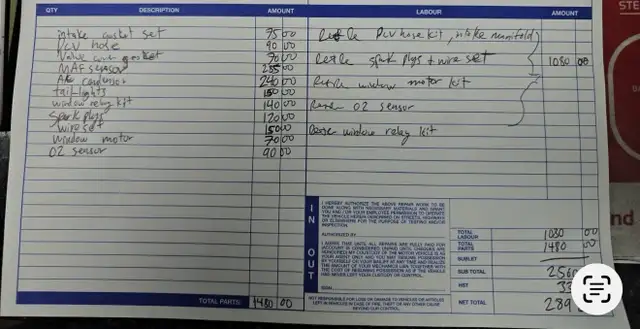 QTY DESCRIPTION AMOUNT LABOUR AMOUNT
intake gasket set 75 00
PCV hose 90 00
Valve cover gasket 70 00
MAF sensor 255 00
A/C condensor 240 00
tail-lights 150 00
window relay kit 140 00
Spark plugs 120 00
wire set 150 00
window motor 70 00
O2 sensor 90 00
PCV hose kit, intake manifold
spark plugs + wire set 1080 00
window motor kit
O2 sensor
window relay kit
TOTAL PARTS: 1480 00
IN
OUT
I HEREBY AUTHORIZE THE ABOVE REPAIR WORK TO BE
DONE ALONG WITH NECESSARY MATERIALS AND GRANT
YOU AND / OR YOUR EMPLOYEE PERMISSION TO OPERATE
THE VEHICLE HEREIN DESCRIBED ON STREETS, HIGHWAYS
OR ELSEWHERE FOR THE PURPOSE OF TESTING AND/OR
INSPECTION.
AUTHORIZED BY
I AGREE THAT UNTIL ALL REPAIRS ARE FULLY PAID FOR
SIGN
NOT RESPONSIBLE FOR LOSS OR DAMAGE TO VEHICLES OR ARTICLES
LEFT IN VEHICLES IN CASE OF FIRE, THEFT OR ANY OTHER CAUSE
BEYOND OUR CONTROL.
TOTAL LABOUR 1080 00
TOTAL PARTS 1480 00
SUBLET
SUB TOTAL 2560
HST 33
NET TOTAL 289
STE
nd